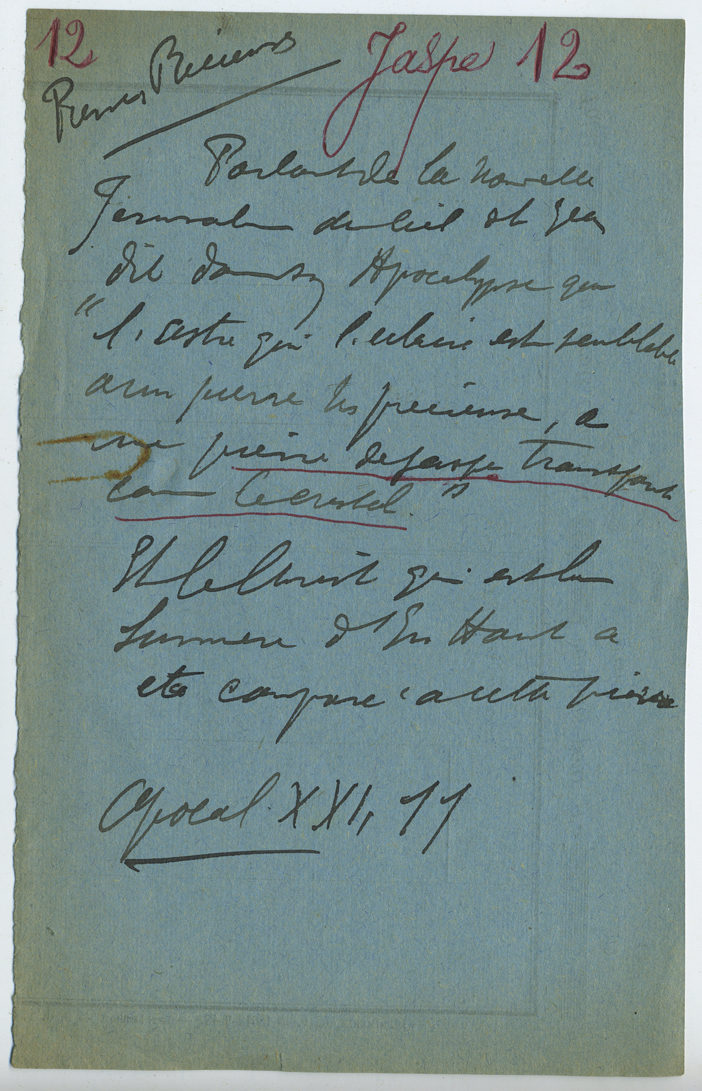 12
Jaspe 12
Pierres Précieuses
Parlant de la nouvelle
Jerusalem du ciel St Jean
dit dans son Apocalypse que
"l'astre qui l'eclaire est semblable
a une pierre tres precieuse, a
une pierre de jaspe transparente
comme le cristal."
Et le Christ qui est la
Lumiere d'En Haut a
ete comparé a cette pierre
Apocal. XXI, 11